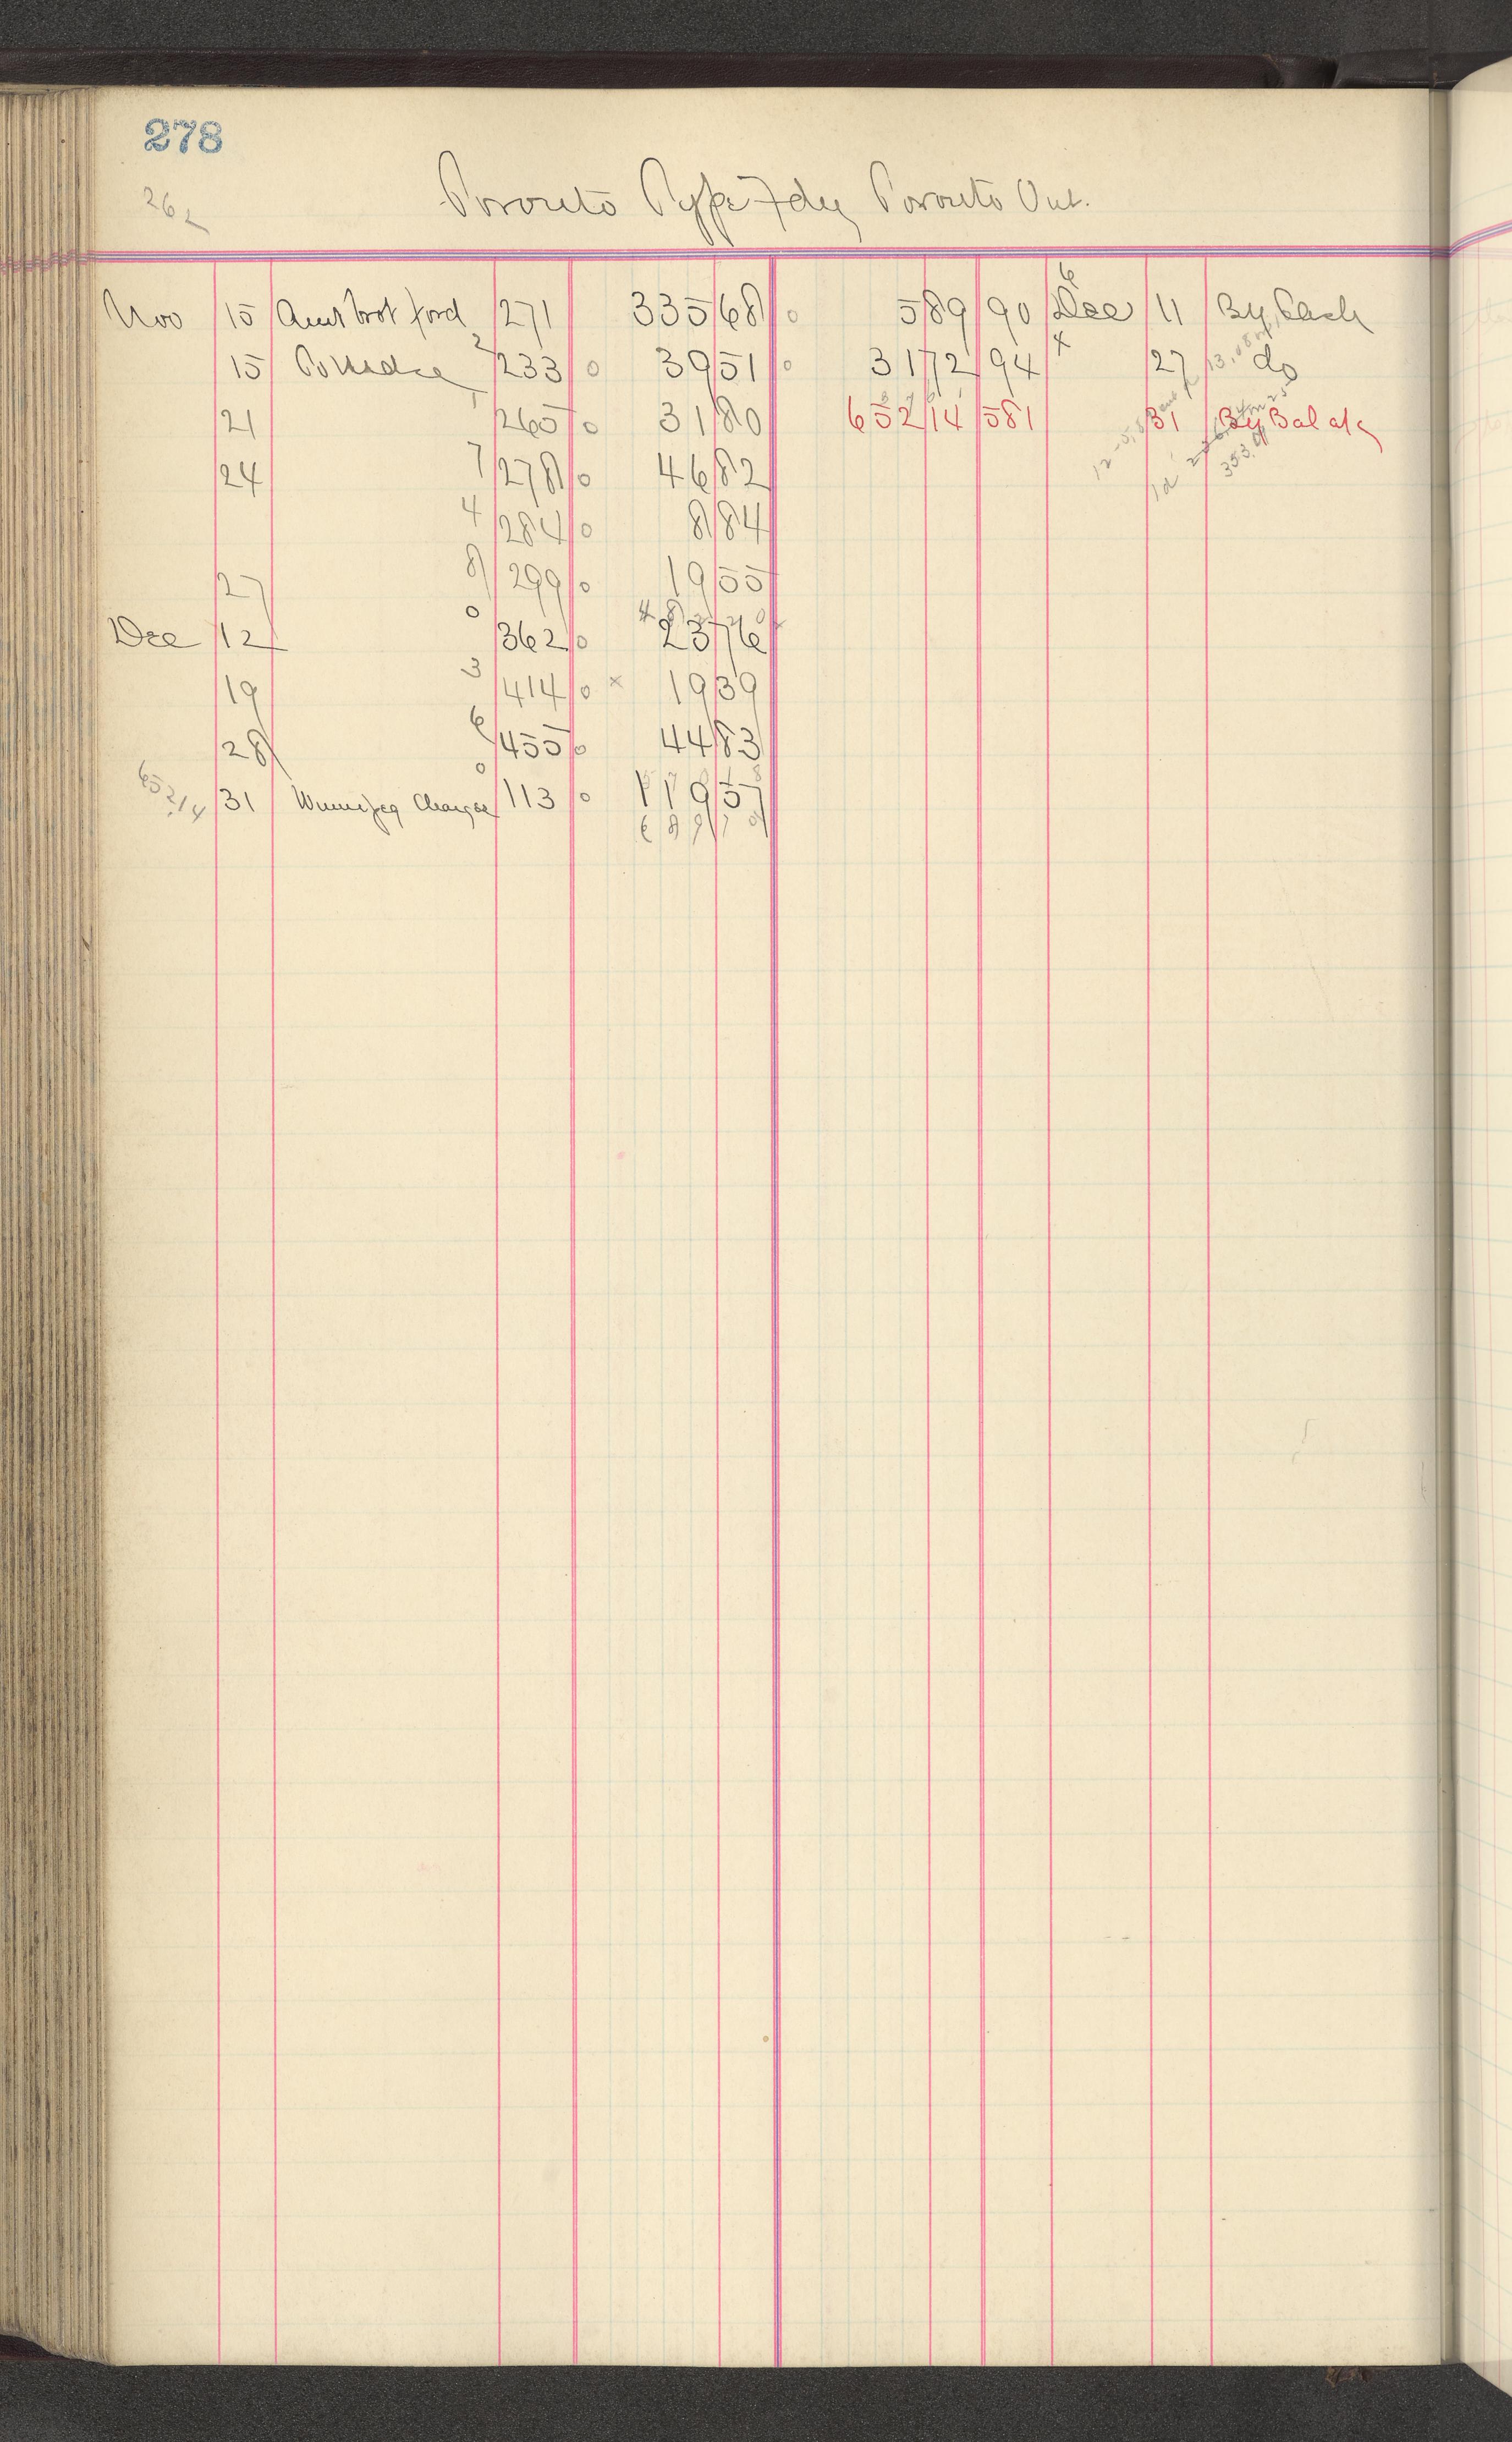 278
262
Toronto Type Fdry Toronto Ont.
Nov 15 Amt brot ford 271 335 68 0 5 89 90 6 Dec 11 By Cash
15 To Mdse 2 233 0 39 51 0 31 72 94 x 27 do
21 1 265 0 31 80 652 14 581 31 By Bal a/c
24 7 278 0 46 82
4 284 0 8 84
27 8 299 0 19 55
Dec 12 0 362 0 23 76
19 3 414 0 x 19 39
28 6 455 0 44 83
652.14 31 Winnipeg Charges 0 113 0 119 57
689 18